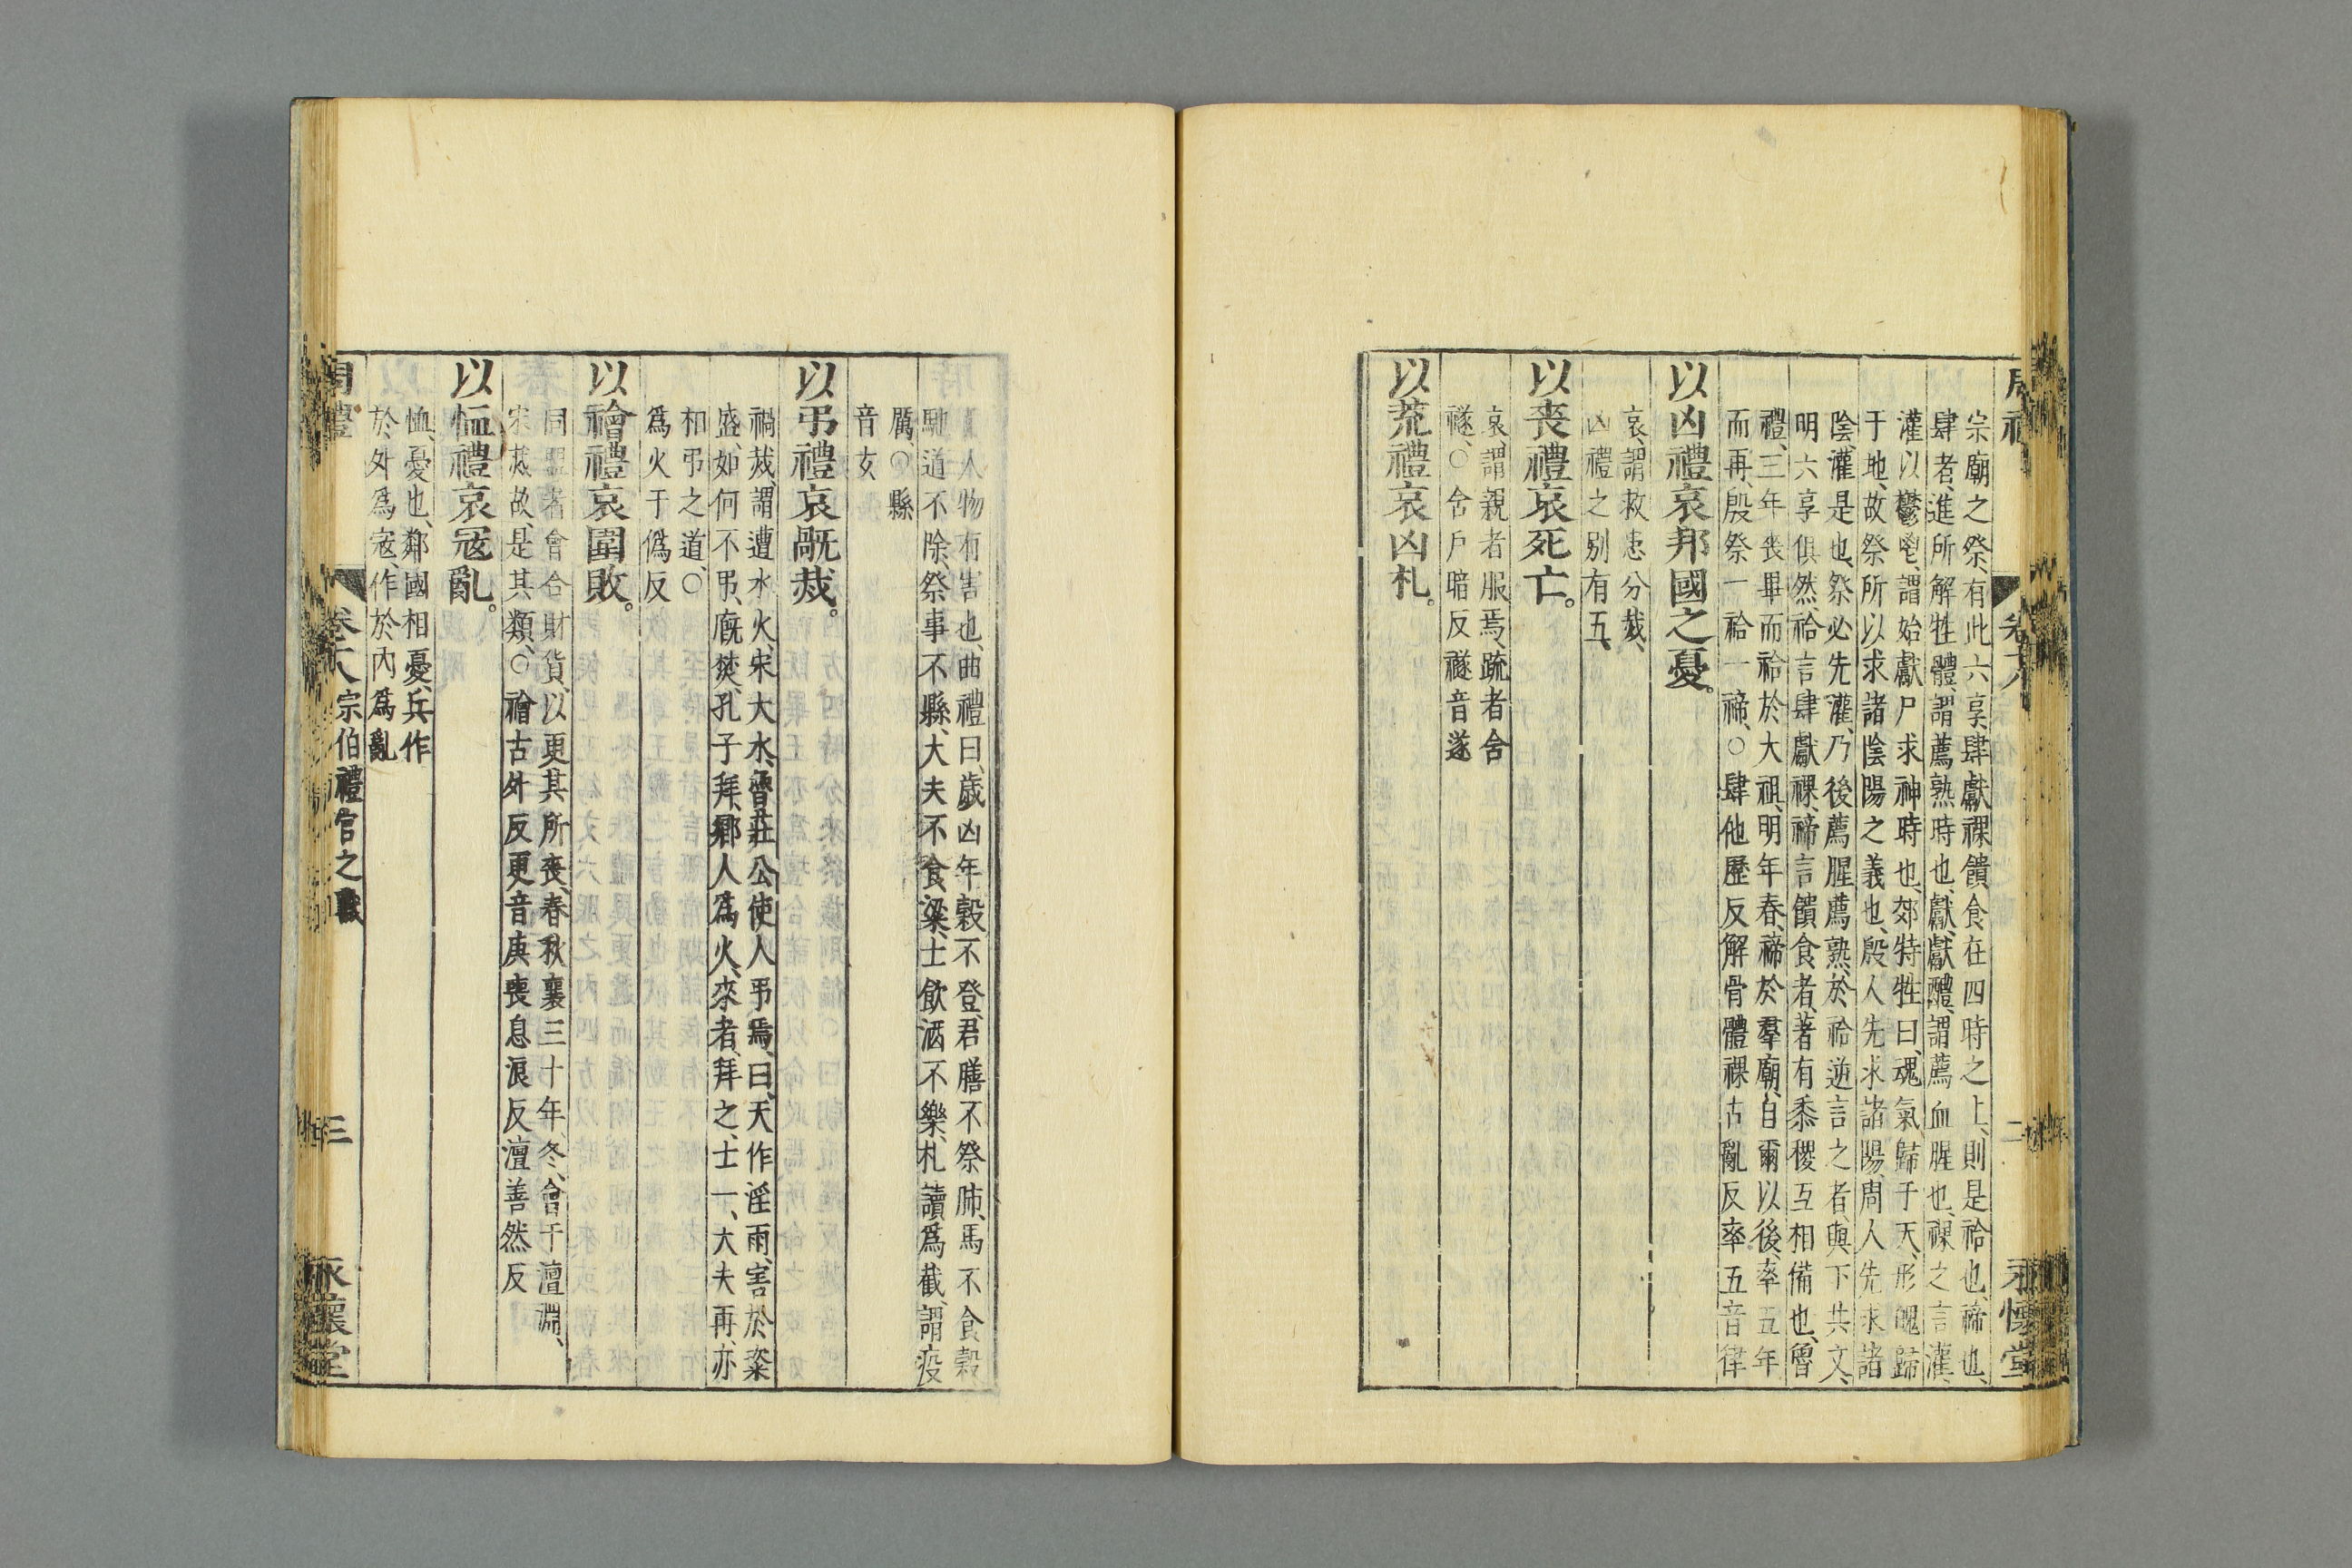 宗廟之祭、有此六享、肆獻祼饋食在四時之上、則是祫也、禘也、
肆者、進所解牲體、謂薦熟時也、獻、獻醴、謂薦血腥也、祼之言灌、
灌以鬱鬯、謂始獻尸求神時也、郊特牲曰、魂氣歸于天、形魄歸
于地、故祭所以求諸陰陽之義也、殷人先求諸陽、周人先求諸
陰、灌是也、祭必先灌、乃後薦腥薦熟、於祫逆言之者、與下共文、
明六享俱然、祫言肆獻祼、禘言饋食者、著有黍稷互相備也、魯
禮、三年喪畢而祫於大祖、明年春、禘於羣廟、自爾以後、率五年
而再殷祭、一祫一禘、○肆他歷反解骨體祼古亂反率五音律
以凶禮哀邦國之憂。
哀、謂救患分烖、
凶禮之别有五、
以喪禮哀死亡。
哀、謂親者服焉、疏者含
襚、○含戶暗反襚音遂
以荒禮哀凶札。
人物有害也、曲禮曰、歲凶年穀不登、君膳不祭肺、馬不食穀
馳道不除、祭事不縣、大夫不食粱、士飲酒不樂、札讀爲截、謂疫
厲、○縣
音玄
以弔禮哀禍烖。
禍烖、謂遭水火、宋大水、魯莊公使人弔焉、曰、天作淫雨、害於粢
盛、如何不弔、廐焚、孔子拜鄉人爲火來者、拜之、士一、大夫再、亦
相弔之道、○
爲火于僞反
以禬禮哀圍敗。
同盟者會合財貨、以更其所喪、春秋襄三十年、冬、會于澶淵、
宋烖故、是其類、○禬古外反更音庚喪息浪反澶善然反
以恤禮哀寇亂。
恤、憂也、鄰國相憂、兵作
於外爲寇、作於內爲亂
周禮
宗伯禮官之職
三
永懷堂
周禮
二
永懷堂